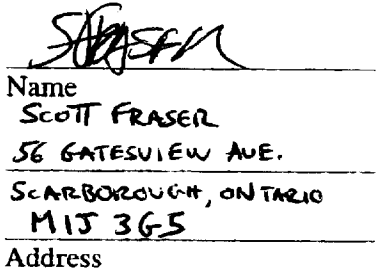 Name
SCOTT FRASER
56 GATESVIEW AVE.
SCARBOROUGH, ONTARIO
M1J 3G5
Address